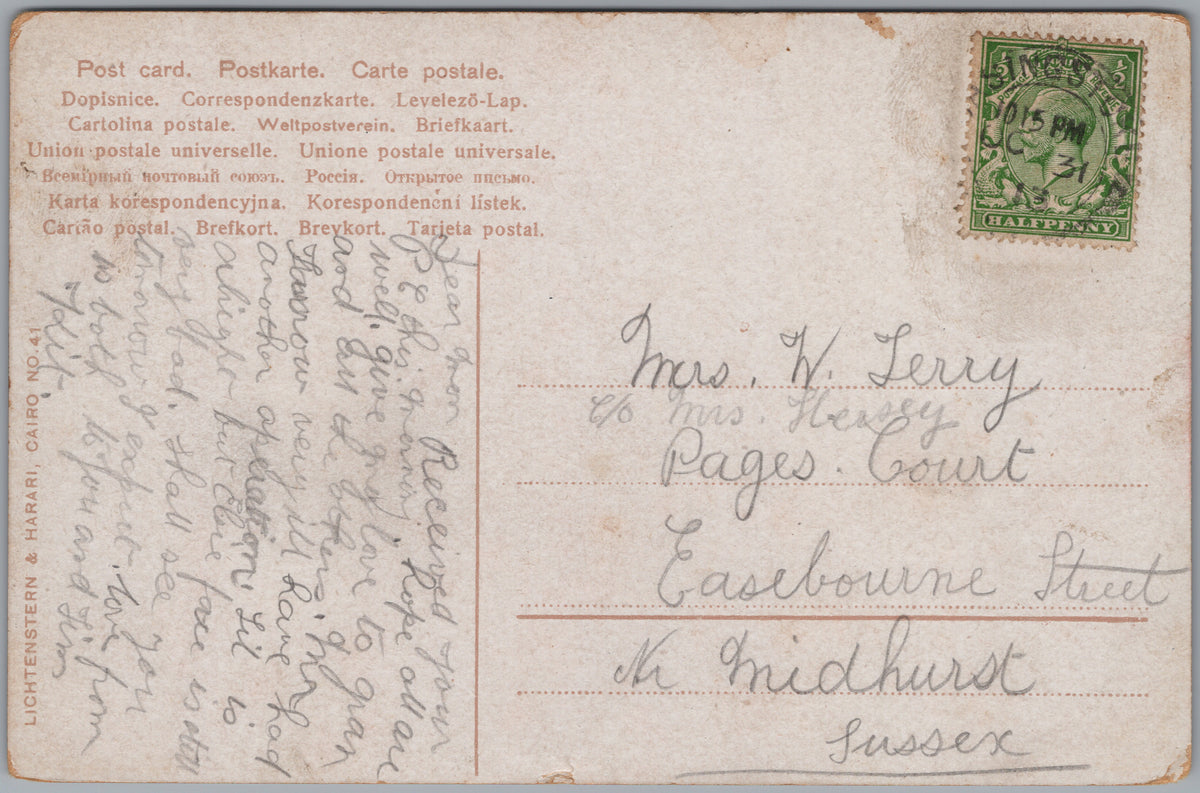 Post card. Postkarte. Carte postale.
Dopisnice. Correspondenzkarte. Levelező-Lap.
Cartolina postale. Weltpostverein. Briefkaart.
Union postale universelle. Unione postale universale.
Всемірный почтовый союзъ. Россія. Открытое письмо.
Karta korespondencyjna. Korespondenční lístek.
Cartão postal. Brefkort. Brevkort. Tarjeta postal.
10 15 PM
OC 31
13
HALFPENNY
Dear Mon Received your
P C this morning hope all are
well. give my love to gran
and all the others. Mr
Thurow very ill have had
another operation Lil is
alright but Elsie face is still
very bad. shall see you
tomorrow I expect. love from
to both to you and Jim
LICHTENSTERN & HARARI, CAIRO NO. 41
Mrs. W. Terry
c/o Mrs. Hersey
Pages. Court
Easebourne Street
Nr Midhurst
Sussex